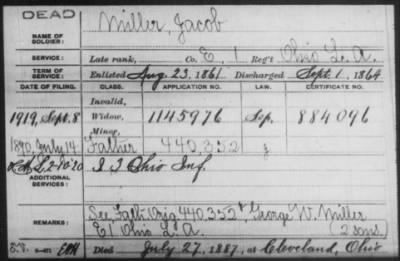 DEAD
NAME OF SOLDIER: Miller, Jacob
SERVICE: Late rank, Co. E, 1 Reg't Ohio L. A.
TERM OF SERVICE: Enlisted Aug. 23, 1861 Discharged Sept. 1, 1864
DATE OF FILING. CLASS. APPLICATION NO. LAW. CERTIFICATE NO.
Invalid,
1919, Sept. 8 Widow, 1145976 Sep. 884096
Minor,
1890, July 14 Father 440,352
2-10-20 I I Ohio Inf.
ADDITIONAL SERVICES:
REMARKS: See Fath. Orig 440,352 George W. Miller
E 1 Ohio L. A. (2 sons)
Died July 27, 1887, at Cleveland, Ohio